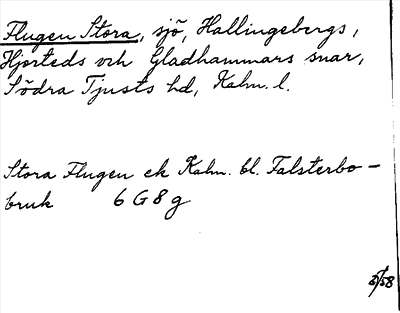 Flugen Stora, sjö, Hallingebergs,
Hjorteds och Gladhammars snar,
Södra Tjusts hd, Kalm. l.
Stora Flugen ek Kalm. bl. Falsterbo-
bruk 6 G 8 g